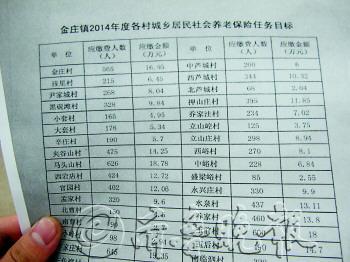 金庄镇2014年度各村城乡居民社会养老保险任务目标
单 位 应缴费人数（人） 应缴金额（万元） 单 位 应缴费人数（人） 应缴金额（万元）
金庄村 565 16.95 中芦城村 200 6
215 6.45 西芦城村 344 10.32
尹家城村 268 8.04 北芦城村 68 2.04
黑砚滩村 328 9.84 押山庄村 395 11.85
小套村 165 4.95 乔家洼村 234 7.02
大套村 178 5.34 立山峪村 125 3.75
辛庄村 190 5.7 立山庄村 298 8.94
夹谷山村 475 14.25 西峪村 270 8.1
马头山村 626 18.78 中峪村 228 6.84
四岩店村 424 12.72 盛梁峪村 85 2.55
官园村 402 12.06 永兴庄村 330 9.9
孟家村 320 9.6 水泉村 437 13.11
北曹村 乔家村 460 13.8
南临泗村